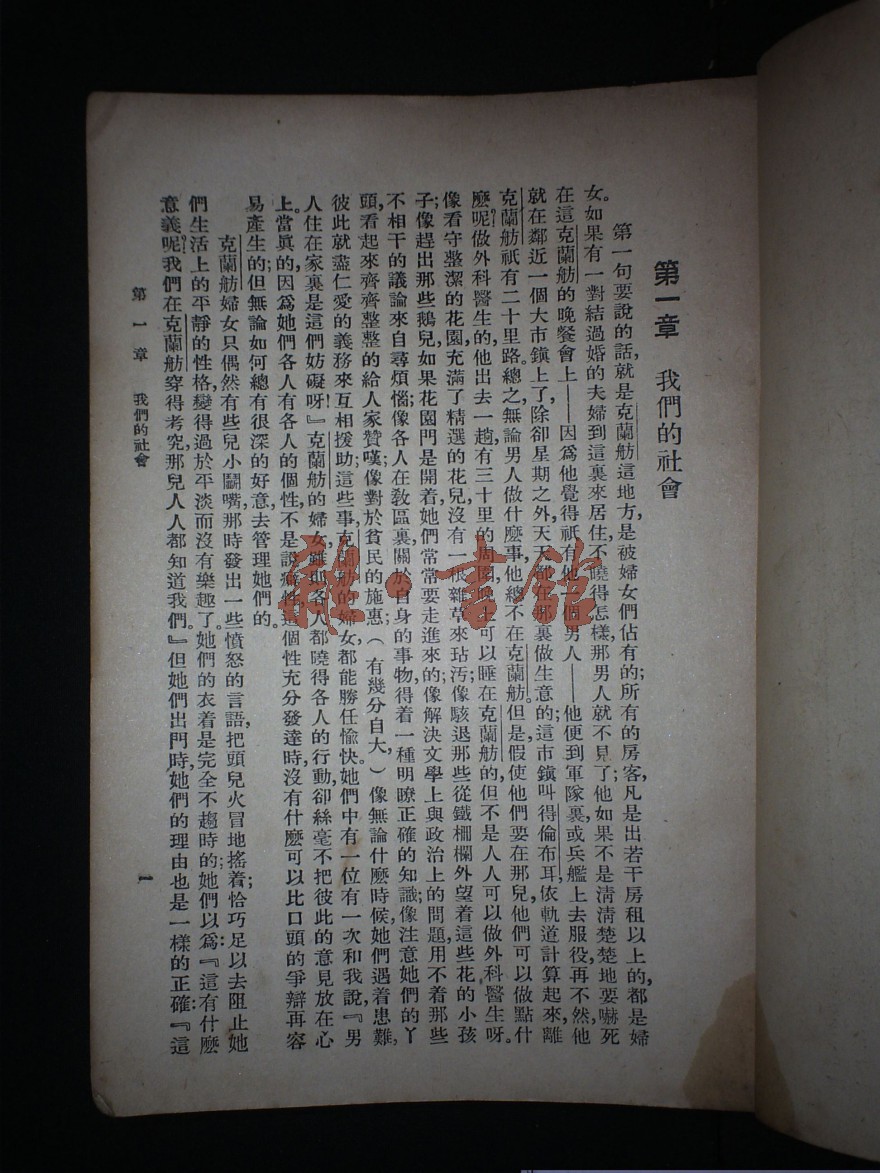 第一章　我們的社會
第一句要說的話，就是克蘭舫這地方，是被婦女們佔有的；所有的房客，凡是出若干房租以上的，都是婦
女。如果有一對結過婚的夫婦到這裏來居住，不曉得怎樣，那男人就不見了；他如果不是清清楚楚地要嚇死
在這克蘭舫的晚餐會上——因爲他覺得祇有他一個男人——他便到軍隊裏或兵艦上去服役，再不然，他
就在鄰近一個大市鎭上了，除卻星期之外，天天都在那裏做生意的；這市鎭叫得倫布耳，依軌道計算起來，離
克蘭舫祇有二十里路。總之，無論男人做什麼事，他總不在克蘭舫。但是，假使他們要在那兒，他們可以做點什
麼呢？做外科醫生的，他出去一趟，有三十里的周圍，晚上可以睡在克蘭舫的，但不是人人可以做外科醫生呀。
像看守整潔的花園，充滿了精選的花兒，沒有一根雜草來玷汚；像駭退那些從鐵柵欄外望着這些花的小孩
子；像趕出那些鵝兒，如果花園門是開着，她們常常要走進來的；像解決文學上與政治上的問題，用不着那些
不相干的議論來自尋煩惱；像各人在敎區裏，關於自身的事物，得着一種明瞭正確的知識；像注意她們的丫
頭，看起來齊齊整整的給人家贊嘆；像對於貧民的施惠（有幾分自大，）像無論什麼時候，她們遇着患難，
彼此就盡仁愛的義務來互相援助；這些事，克蘭舫的婦女，都能勝任愉快。她們中有一位有一次和我說，『男
人住在家裏是這們妨礙呀！』克蘭舫的婦女，雖則各人都曉得各人的行動，卻絲毫不把彼此的意見放在心
上。當眞的，因爲她們各人有各人的個性，不是說癖性，這個性充分發達時，沒有什麼可以比口頭的爭辯再容
易產生的；但無論如何，總有很深的好意，去管理她們的。
克蘭舫婦女只偶然有些兒小鬭嘴，那時發出一些憤怒的言語，把頭兒火冒地搖着；恰巧足以去阻止她
們生活上的平靜的性格，變得過於平淡而沒有樂趣了。她們的衣着是完全不趨時的，她們以爲：『這有什麼
意義呢？我們在克蘭舫穿得考究，那兒人人都知道我們。』但她們出門時，她們的理由也是一樣的正確：『這
第一章　我們的社會
一